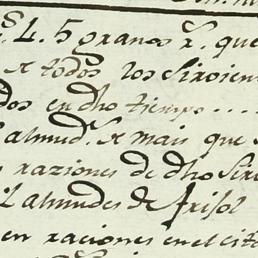 L. 5 granos r. que
a todos los Sirvien
dos en dho tiempo ....
almud. de mais que
raziones de dho Sir
almudes de frisol
en raciones en el cita